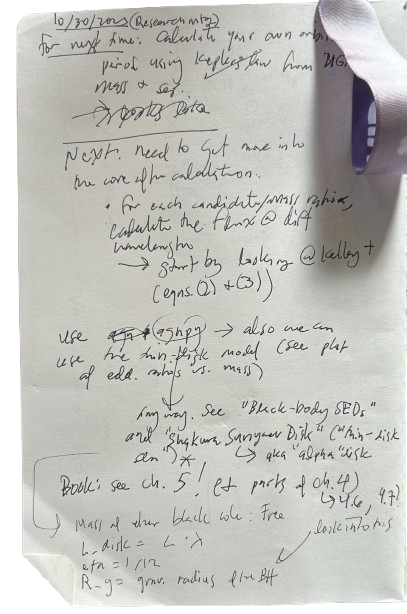 10/30/2023 (Research mtg)
For next time: Calculate your own orbital
period using Kepler's law from BIG
mass & sep.
Next: need to get more into
the core of the calculation.
• For each candidate/mass ratios,
calculate the flux @ diff
wavelengths
→ start by looking @ Kelley +
(eqns. (2) + (3))
use agnpy → also we can
use the thin-disk model (see plot
of edd. ratios vs. mass)
Anyway. See "Black-body SEDs"
and "Shakura Sunyaev Disk" ("thin-disk
) * ↳ aka "alpha" disk
Book: see ch. 5! (& parts of ch. 4)
↳ 4.6, 4.7?
Mass of other black hole: Free
look into this
L_disk = L · λ
eta = 1/12
R_g = grav. radius of the BH